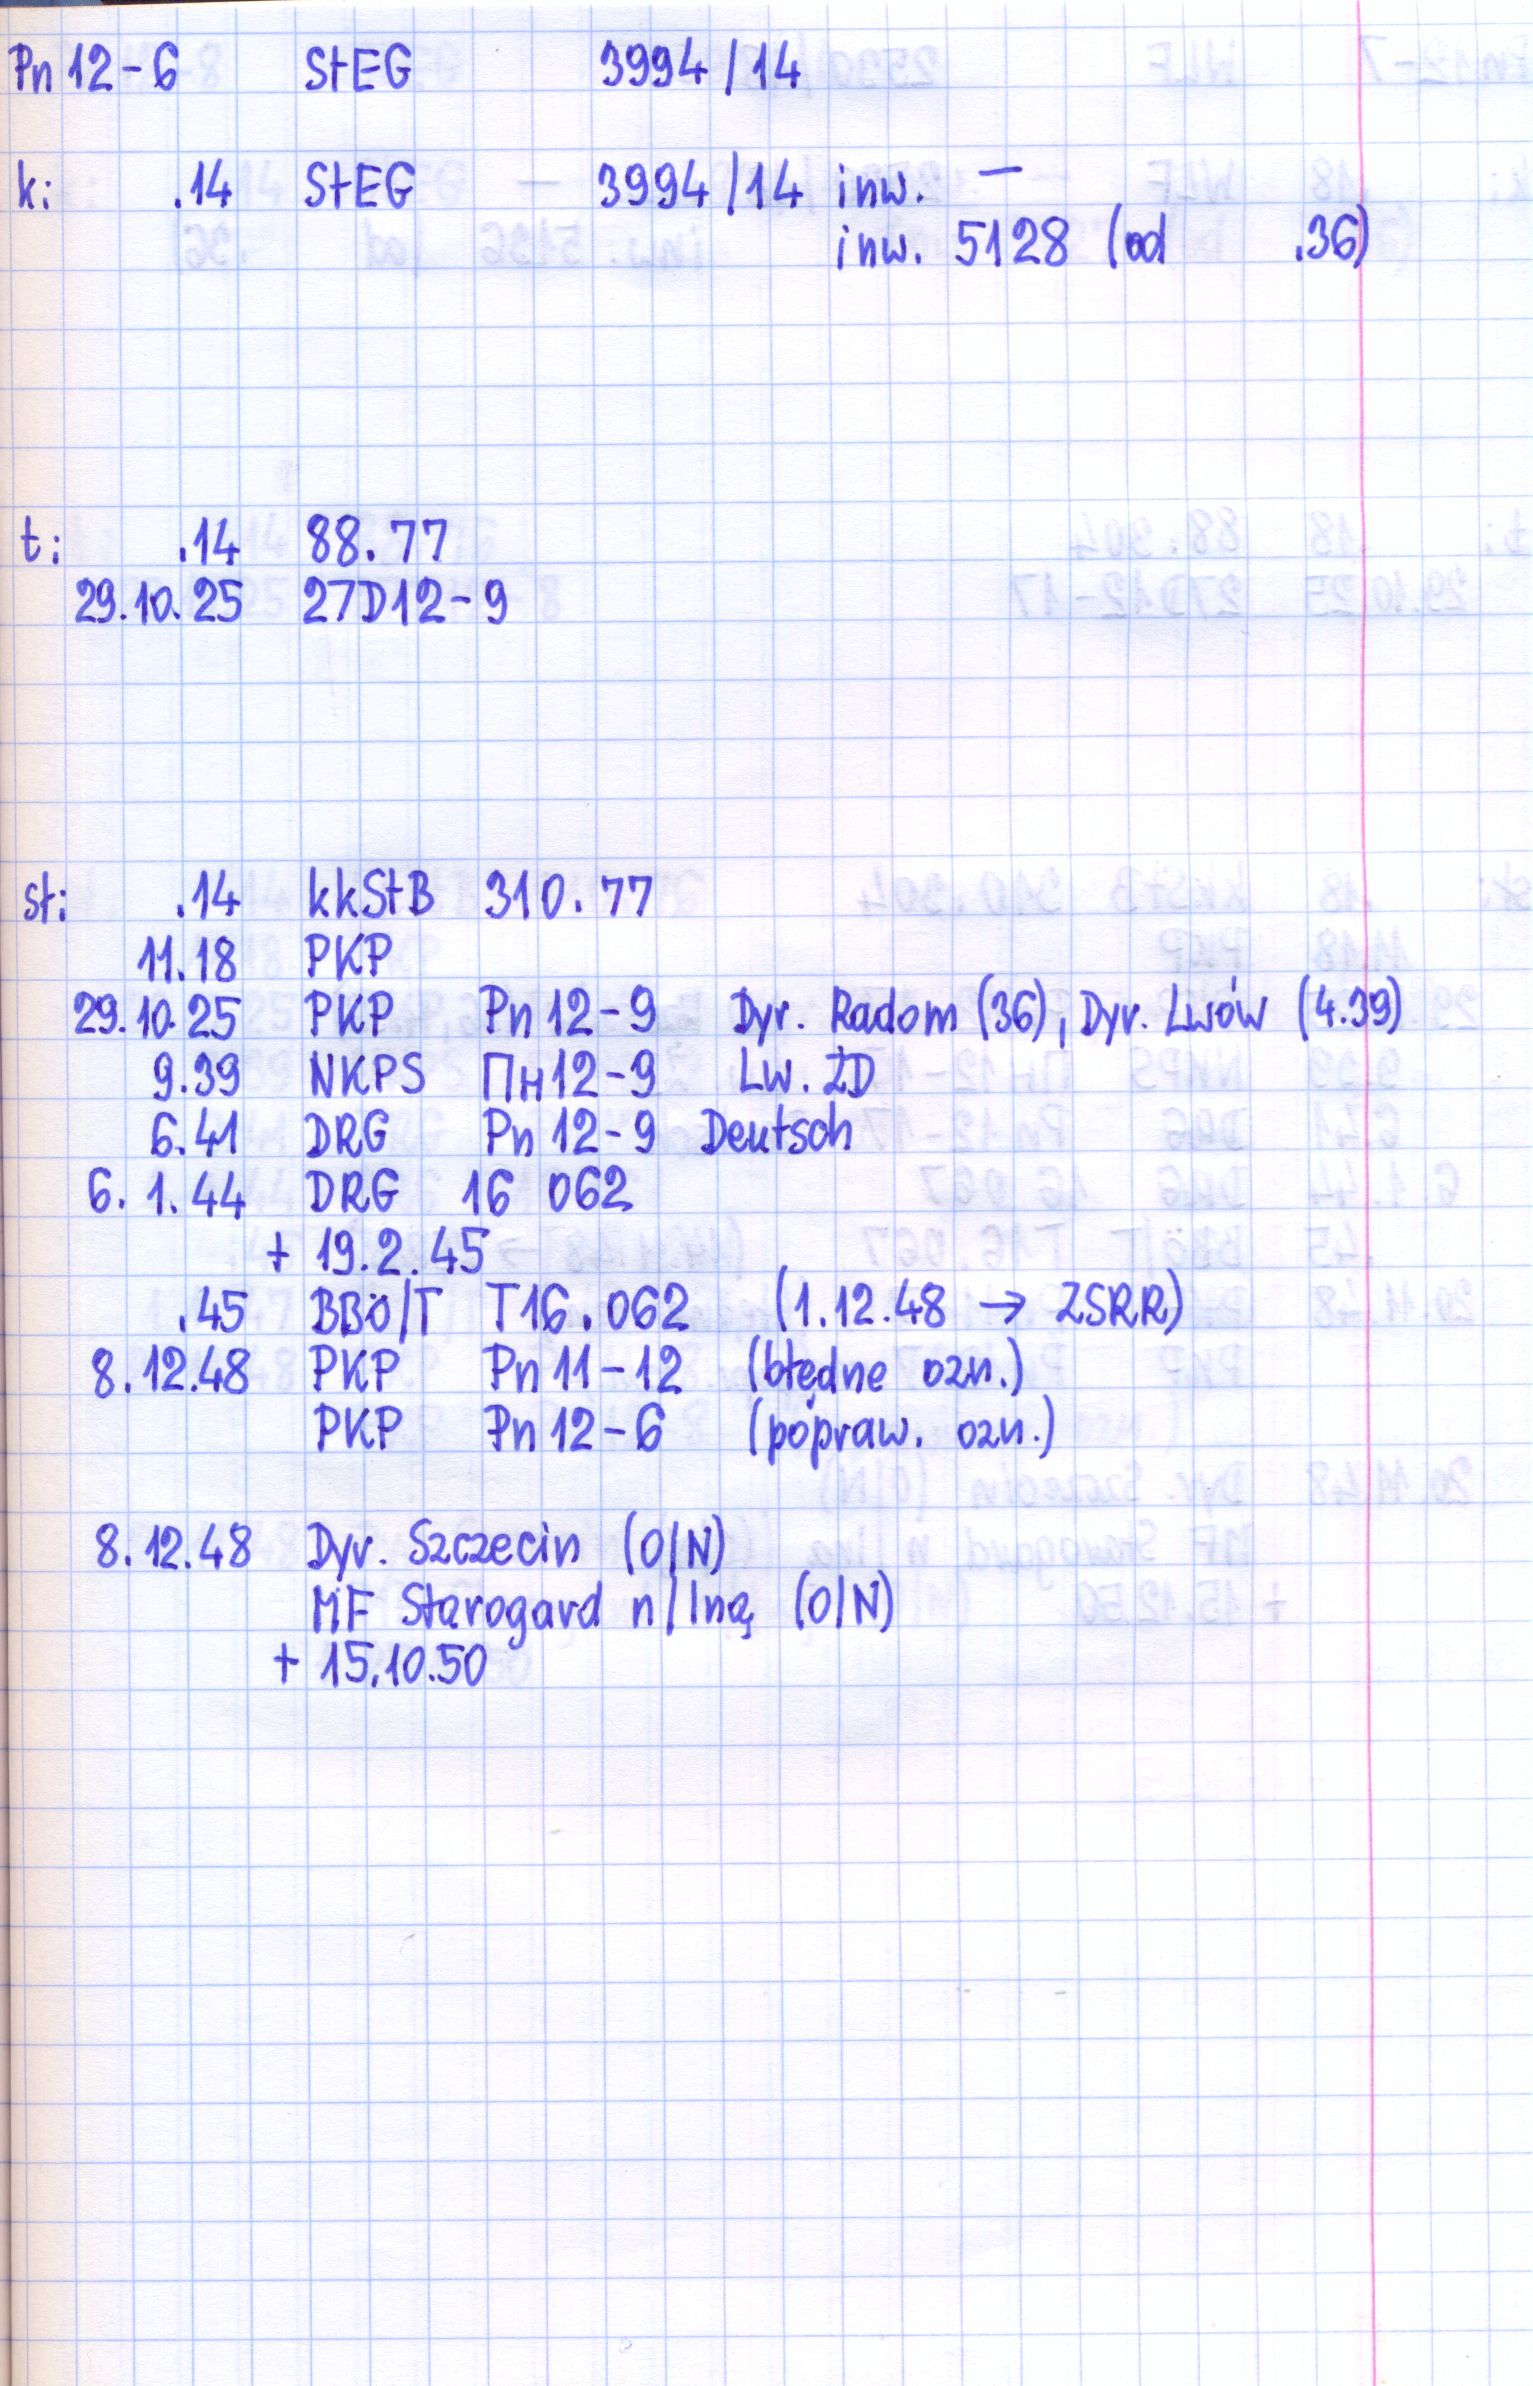 Pn 12-6 StEG 3994/14
k: .14 StEG 3994/14 inw. —
inw. 5128 (od .36)
t: .14 88.77
29.10.25 27D12-9
st: .14 kkStB 310.77
11.18 PKP
29.10.25 PKP Pn 12-9 Dyr. Radom (36), Dyr. Lwów (4.39)
9.39 NKPS Пн12-9 Lw. ŻD
6.41 DRG Pn 12-9 Deutsch
6.1.44 DRG 16 062
+ 19.2.45
.45 BBÖ/T T16.062 (1.12.48 → ZSRR)
8.12.48 PKP Pn 11-12 (błędne ozn.)
PKP Pn 12-6 (popraw. ozn.)
8.12.48 Dyr. Szczecin (O/N)
MF Starogard n/Iną (O/N)
+ 15.10.50